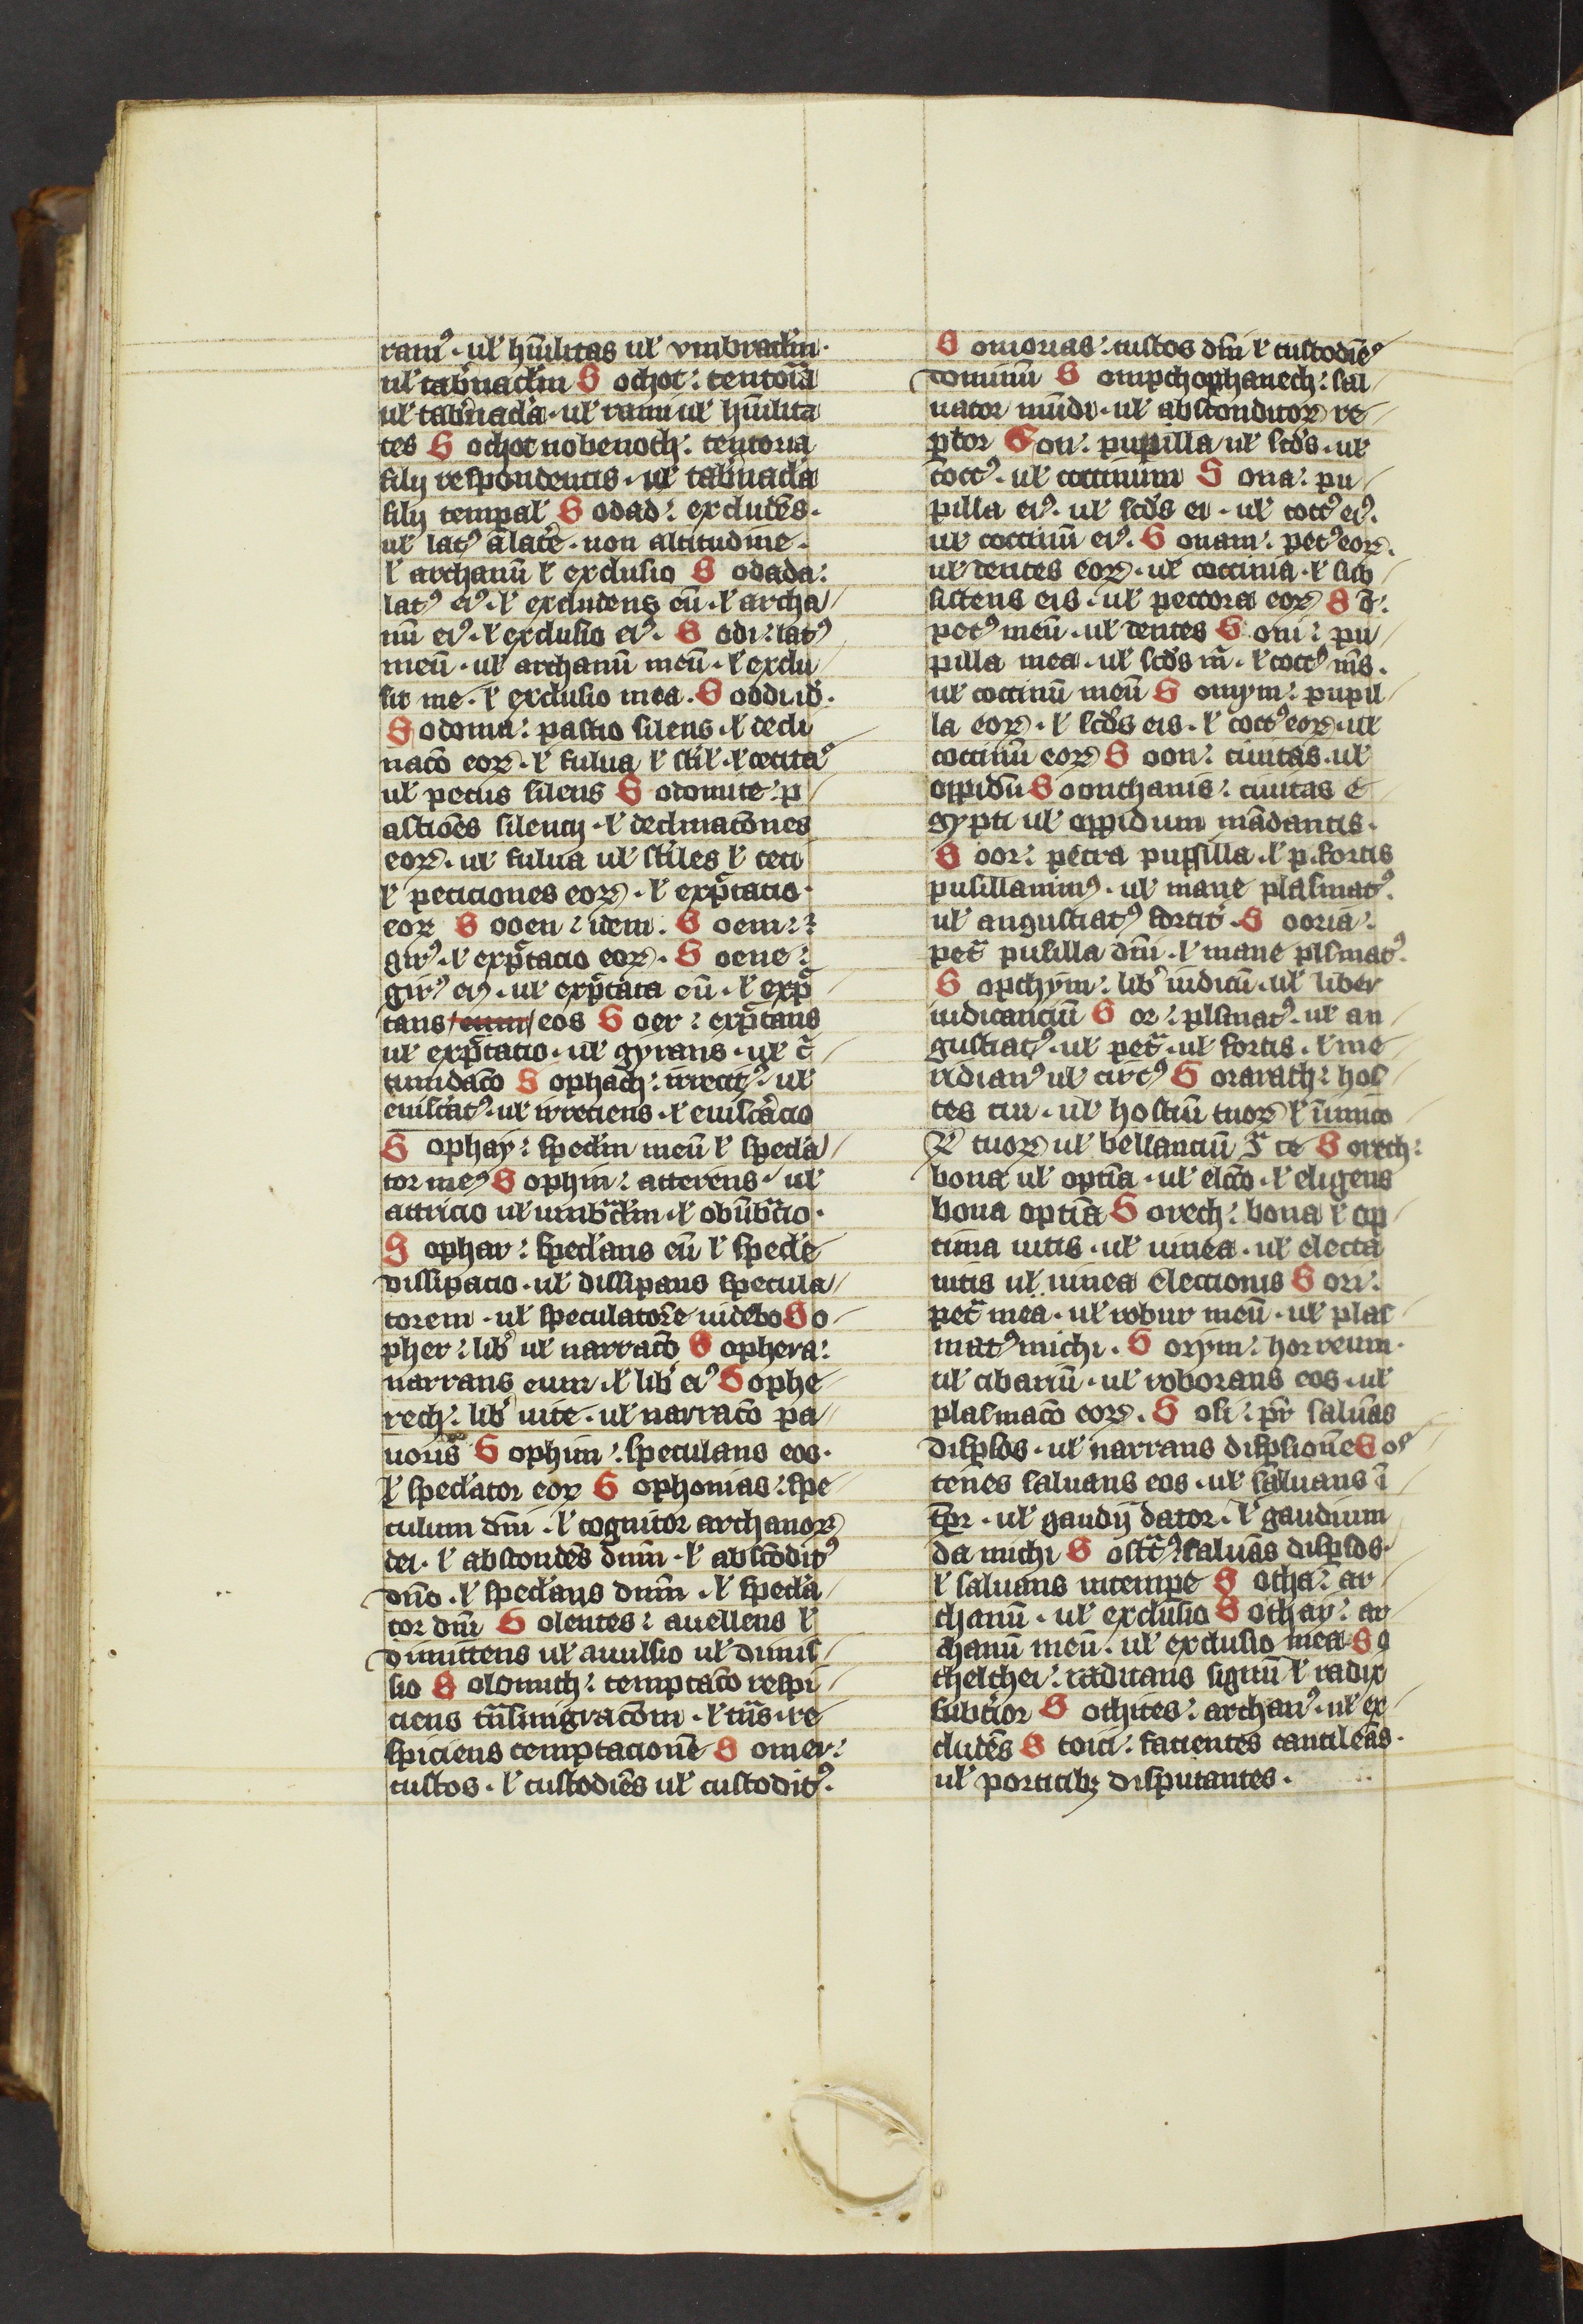 ramꝰ · ul̕ hūilitas ul̕ vmbracl̕m ·
ul̕ tab̕nacl̕m S ochot : tentoīa
ul̕ tab̕nacl̕a · ul̕ rami ul̕ hūilita
tes S ochot nobenoth : tentoria
filij respondentis · ul̕ tab̕nacl̕a
filij tempal̕ S odad : excludēs ·
ul̕ latꝰ a latē · non altitudine ·
l̕ archanū l̕ exclusio S odada :
latꝰ eiꝰ · l̕ excludens eū · l̕ archa
nū eiꝰ · l̕ exclusio eiꝰ · S odi : latꝰ
meū · ul̕ archanū meū · l̕ exclu
sit me · l̕ exclusio mea · S oddi id̕ ·
S odoma : pastio silens · l̕ decli
nacō eoꝝ · l̕ fulua l̕ st̕il̕ · l̕ cecitaꝰ
ul̕ pecus silens S odomite : p
astiōes silencij · l̕ declinacōnes
eoꝝ · ul̕ fulua ul̕ st̕iles l̕ ceci
l̕ peticiones eoꝝ · l̕ exp̄ctacio ·
eoꝝ S ooen : idem · S oem :
girꝰ · l̕ exp̄ctacio eoꝝ · S oene :
girꝰ eiꝰ · ul̕ exp̄ctata eū · l̕ exp̄
tans eum eos S oer : exp̄ctans
ul̕ exp̄ctacio · ul̕ gyrans · ul̕ c̄
cundacō S ophach : irrecitꝰ · ul̕
euisc̕atꝰ · ul̕ irreciens · l̕ euisc̕acio
S ophay : specl̕m meū l̕ specl̕a
tor meꝰ S ophin : atterens · ul̕
attricio ul̕ umb̄cl̕m · l̕ obūb̄cio ·
S ophar : specl̕ans eū l̕ specl̕e
dissipacio · ul̕ dissipans specula
torem · ul̕ speculatorē uidebo S o
pher : lib̕ ul̕ narracō S ophera :
narrans eum · l̕ lib̕ eiꝰ S ophe
rech : lib̕ uite · ul̕ narracō pa
uoris S ophim : speculans eos ·
l̕ specl̕ator eoꝝ S ophonias : spe
culum dn̄i · l̕ cognitor archanoꝝ
dei · l̕ abscondēs dn̄m · l̕ abscōditꝰ
dn̄o · l̕ specl̕ans dn̄m · l̕ specl̕a
tor dn̄i S olentes : auellens l̕
dimittens ul̕ auulsio ul̕ dimis
sio S olomith : temptacō respi
ciens tn̄smigracōm · l̕ tn̄s · re
spiciens temptacionē S omer :
custos · l̕ custodiēs ul̕ custoditꝰ ·
S omorias : custos dn̄i l̕ custodiēꝰ
dominū S ompchophanech : sal
uator mūdi · ul̕ absconditoꝝ re
ptor S on : pupilla ul̕ scd̕s · ul̕
coccꝰ · ul̕ coccinum S ona : pu
pilla eiꝰ · ul̕ scd̕s ei · ul̕ coccꝰ eiꝰ ·
ul̕ coccinū eiꝰ · S onam : pecꝰ eoꝝ ·
ul̕ dentes eoꝝ · ul̕ coccinia · l̕ sub
sistens eis · ul̕ peccora eoꝝ S oī :
pecꝰ meū · ul̕ dentes S oni : pu
pilla mea · ul̕ scd̕s m̄ · l̕ coccꝰ m̄s ·
ul̕ coccinū meū S onym : pupil
la eoꝝ · l̕ scd̕s eis · l̕ coccꝰ eoꝝ · ul̕
coccinū eoꝝ S oon : ciuitas · ul̕
oppidū S oonthanis : ciuitas e
gypti ul̕ oppidum mādantis ·
S oor : petra pupsilla · l̕ p̄ · fortis
pusillanimꝰ · ul̕ mane plasmatꝰ ·
ul̕ angustiatꝰ fortit̕ · S ooria :
pet̄ pusilla dn̄i · l̕ mane plsmatꝰ ·
S opthym : lib̕ iudicū · ul̕ liber
iudicanciū S or : plsmatꝰ · ul̕ an
gustiatꝰ · ul̕ pet̄ · ul̕ fortis · l̕ me
ridianꝰ ul̕ circꝰ S orarath : hos
tes tui · ul̕ hostiū tuoꝝ l̕ inimico
ꝝ tuoꝝ ul̕ bellanciū cͣ te S orech :
bona ul̕ optīa · ul̕ elcō · l̕ eligens
bona optīa S orech : bona l̕ op
tima uitis · ul̕ uinea · ul̕ electa
uitis ul̕ uinea electionis S ori :
pet̄ mea · ul̕ robur meū · ul̕ plas
matꝰ michi · S orym : horreum ·
ul̕ cibariū · ul̕ roborans eos · ul̕
plasmacō eoꝝ · S osi : pr̄ saluās
disp̄sos · ul̕ narrans disp̄sionē S os
tenes saluans eos · ul̕ saluans ī
tp̄r · ul̕ gaudij dator · l̕ gaudium
da michi S ostēꝰ : saluās disp̄sos ·
l̕ saluans intempe S otha : ar
chanū · ul̕ exclusio S othay : ar
chanū meū · ul̕ exclusio mea S o
thelthei : radicans signū l̕ radix
subt̕ior S othites : archanꝰ · ul̕ ex
cludēs S toici : facientes cantilēas ·
ul̕ porticibꝫ disputantes ·